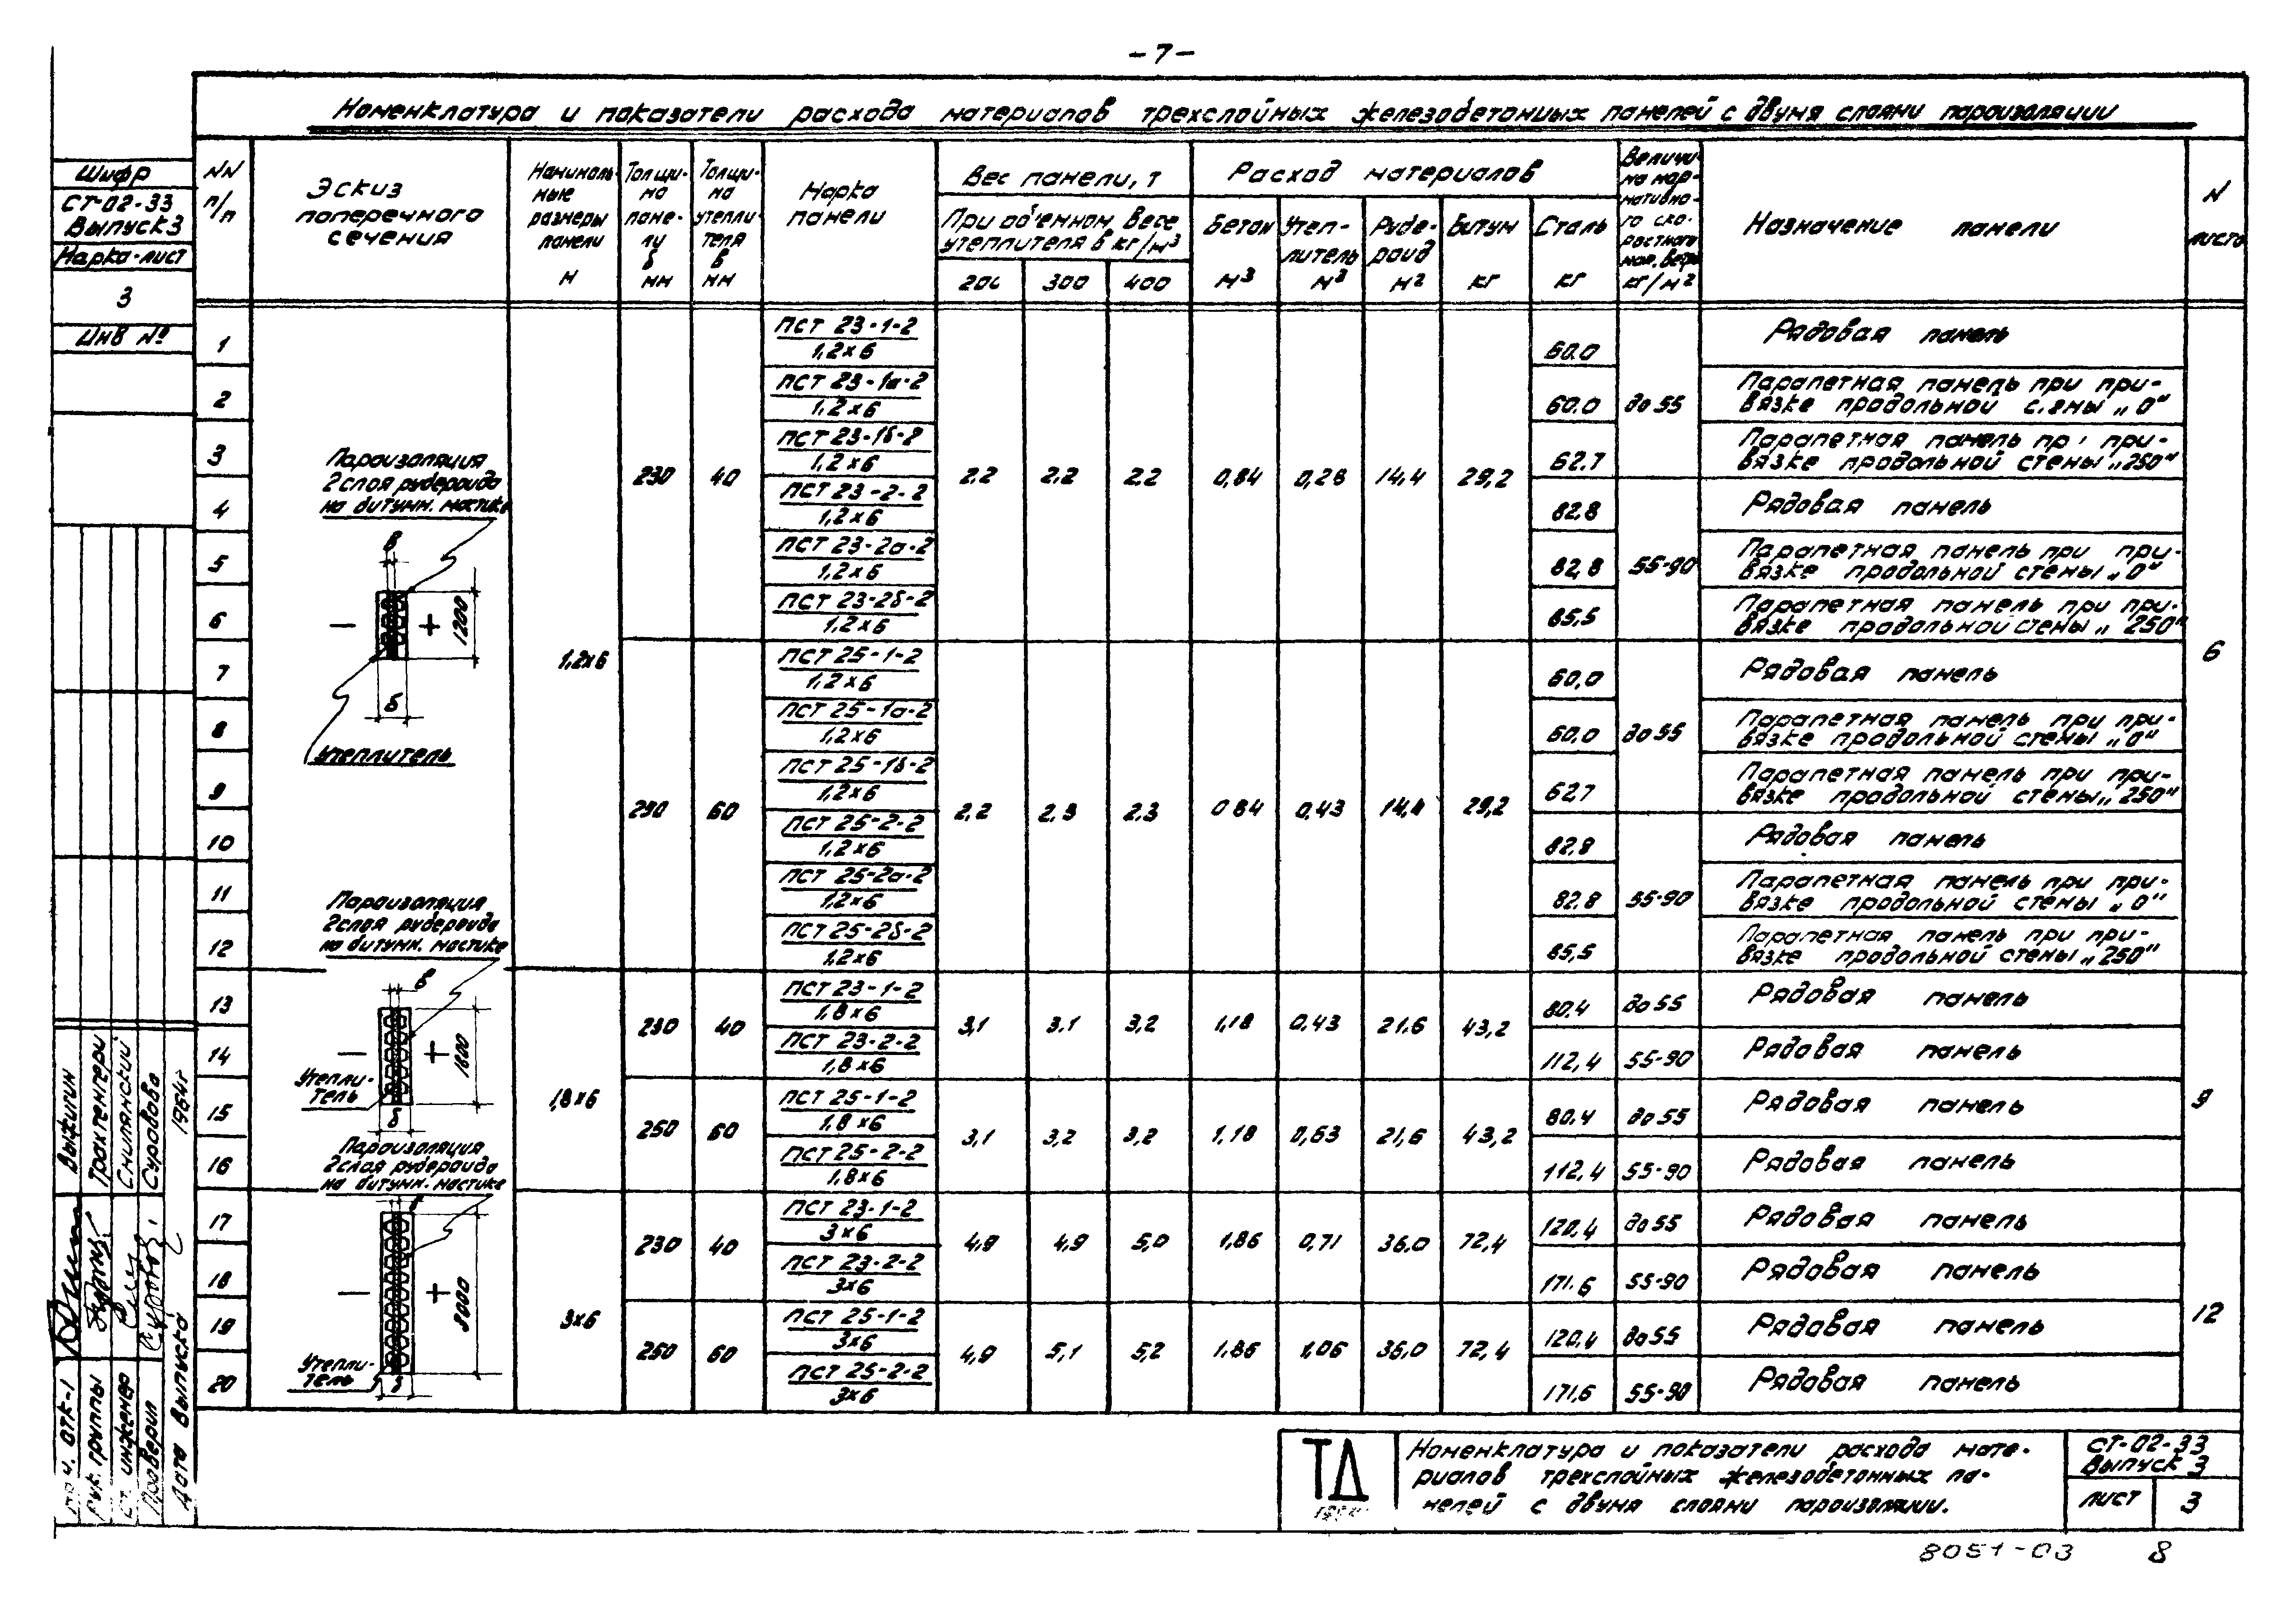 -7-
Номенклатура и показатели расхода материалов трехслойных железобетонных панелей с двумя слоями пароизоляции
Шифр
СТ-02-33
Выпуск 3
Марка-лист
3
Инв №
NN п/п
Эскиз поперечного сечения
Номинальные размеры панели м
Толщина панели б мм
Толщина утеплителя в мм
Марка панели
Вес панели, т
При об'емном весе утеплителя в кг/м3
200 300 400
Расход материалов
Бетон м3
Утеплитель м3
Рубероид м2
Битум кг
Сталь кг
Величина нормативного скоростного нап. ветра кг/м2
Назначение панели
N листа
Пароизоляция
2 слоя рубероида
на битумн. мастике
в
- + 1200
б
Утеплитель
1,2х6
230 40 2,2 2,2 2,2 0,84 0,28 14,4 29,2
1 ПСТ 23-1-2 / 1,2х6 60,0 Рядовая панель
2 ПСТ 23-1а-2 / 1,2х6 60,0 до 55 Парапетная панель при привязке продольной стены „0“
3 ПСТ 23-1б-2 / 1,2х6 62,7 Парапетная панель при привязке продольной стены „250“
4 ПСТ 23-2-2 / 1,2х6 82,8 Рядовая панель
5 ПСТ 23-2а-2 / 1,2х6 82,8 55-90 Парапетная панель при привязке продольной стены „0“
6 ПСТ 23-2б-2 / 1,2х6 85,5 Парапетная панель при привязке продольной стены „250“
6
250 60 2,2 2,3 2,3 0,84 0,43 14,4 29,2
7 ПСТ 25-1-2 / 1,2х6 60,0 Рядовая панель
8 ПСТ 25-1а-2 / 1,2х6 60,0 до 55 Парапетная панель при привязке продольной стены „0“
9 ПСТ 25-1б-2 / 1,2х6 62,7 Парапетная панель при привязке продольной стены „250“
10 ПСТ 25-2-2 / 1,2х6 82,8 Рядовая панель
11 ПСТ 25-2а-2 / 1,2х6 82,8 55-90 Парапетная панель при привязке продольной стены „0“
12 ПСТ 25-2б-2 / 1,2х6 85,5 Парапетная панель при привязке продольной стены „250“
Пароизоляция
2 слоя рубероида
на битумн. мастике
в
- + 1800
Утеплитель
б
1,8х6
230 40 3,1 3,1 3,2 1,18 0,43 21,6 43,2
13 ПСТ 23-1-2 / 1,8х6 80,4 до 55 Рядовая панель
14 ПСТ 23-2-2 / 1,8х6 112,4 55-90 Рядовая панель
9
250 60 3,1 3,2 3,2 1,18 0,63 21,6 43,2
15 ПСТ 25-1-2 / 1,8х6 80,4 до 55 Рядовая панель
16 ПСТ 25-2-2 / 1,8х6 112,4 55-90 Рядовая панель
Пароизоляция
2 слоя рубероида
на битумн. мастике
- + 3000
Утеплитель
3х6
230 40 4,9 4,9 5,0 1,86 0,71 36,0 72,4
17 ПСТ 23-1-2 / 3х6 120,4 до 55 Рядовая панель
18 ПСТ 23-2-2 / 3х6 171,6 55-90 Рядовая панель
12
250 60 4,9 5,1 5,2 1,86 1,06 36,0 72,4
19 ПСТ 25-1-2 / 3х6 120,4 до 55 Рядовая панель
20 ПСТ 25-2-2 / 3х6 171,6 55-90 Рядовая панель
ОТК-1 Выжигин
Рук. группы Трахтенгерц
Ст. инженер Смилянский
Проверил Суровова
Дата выпуска 1964г
ТД
Номенклатура и показатели расхода мате-
риалов трехслойных железобетонных па-
нелей с двумя слоями пароизоляции.
СТ-02-33
Выпуск 3
лист 3
8051-03 8